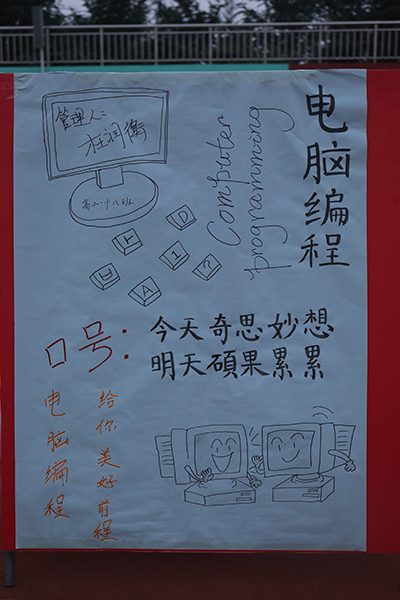 电脑编程
Computer
programmwong
管理人:
汪润衡
高二·十八班
D
1
?
U
A
口号:
今天奇思妙想
明天碩果累累
电脑编程
给你美好前程